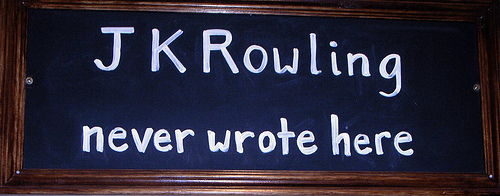 J K Rowling
never wrote here